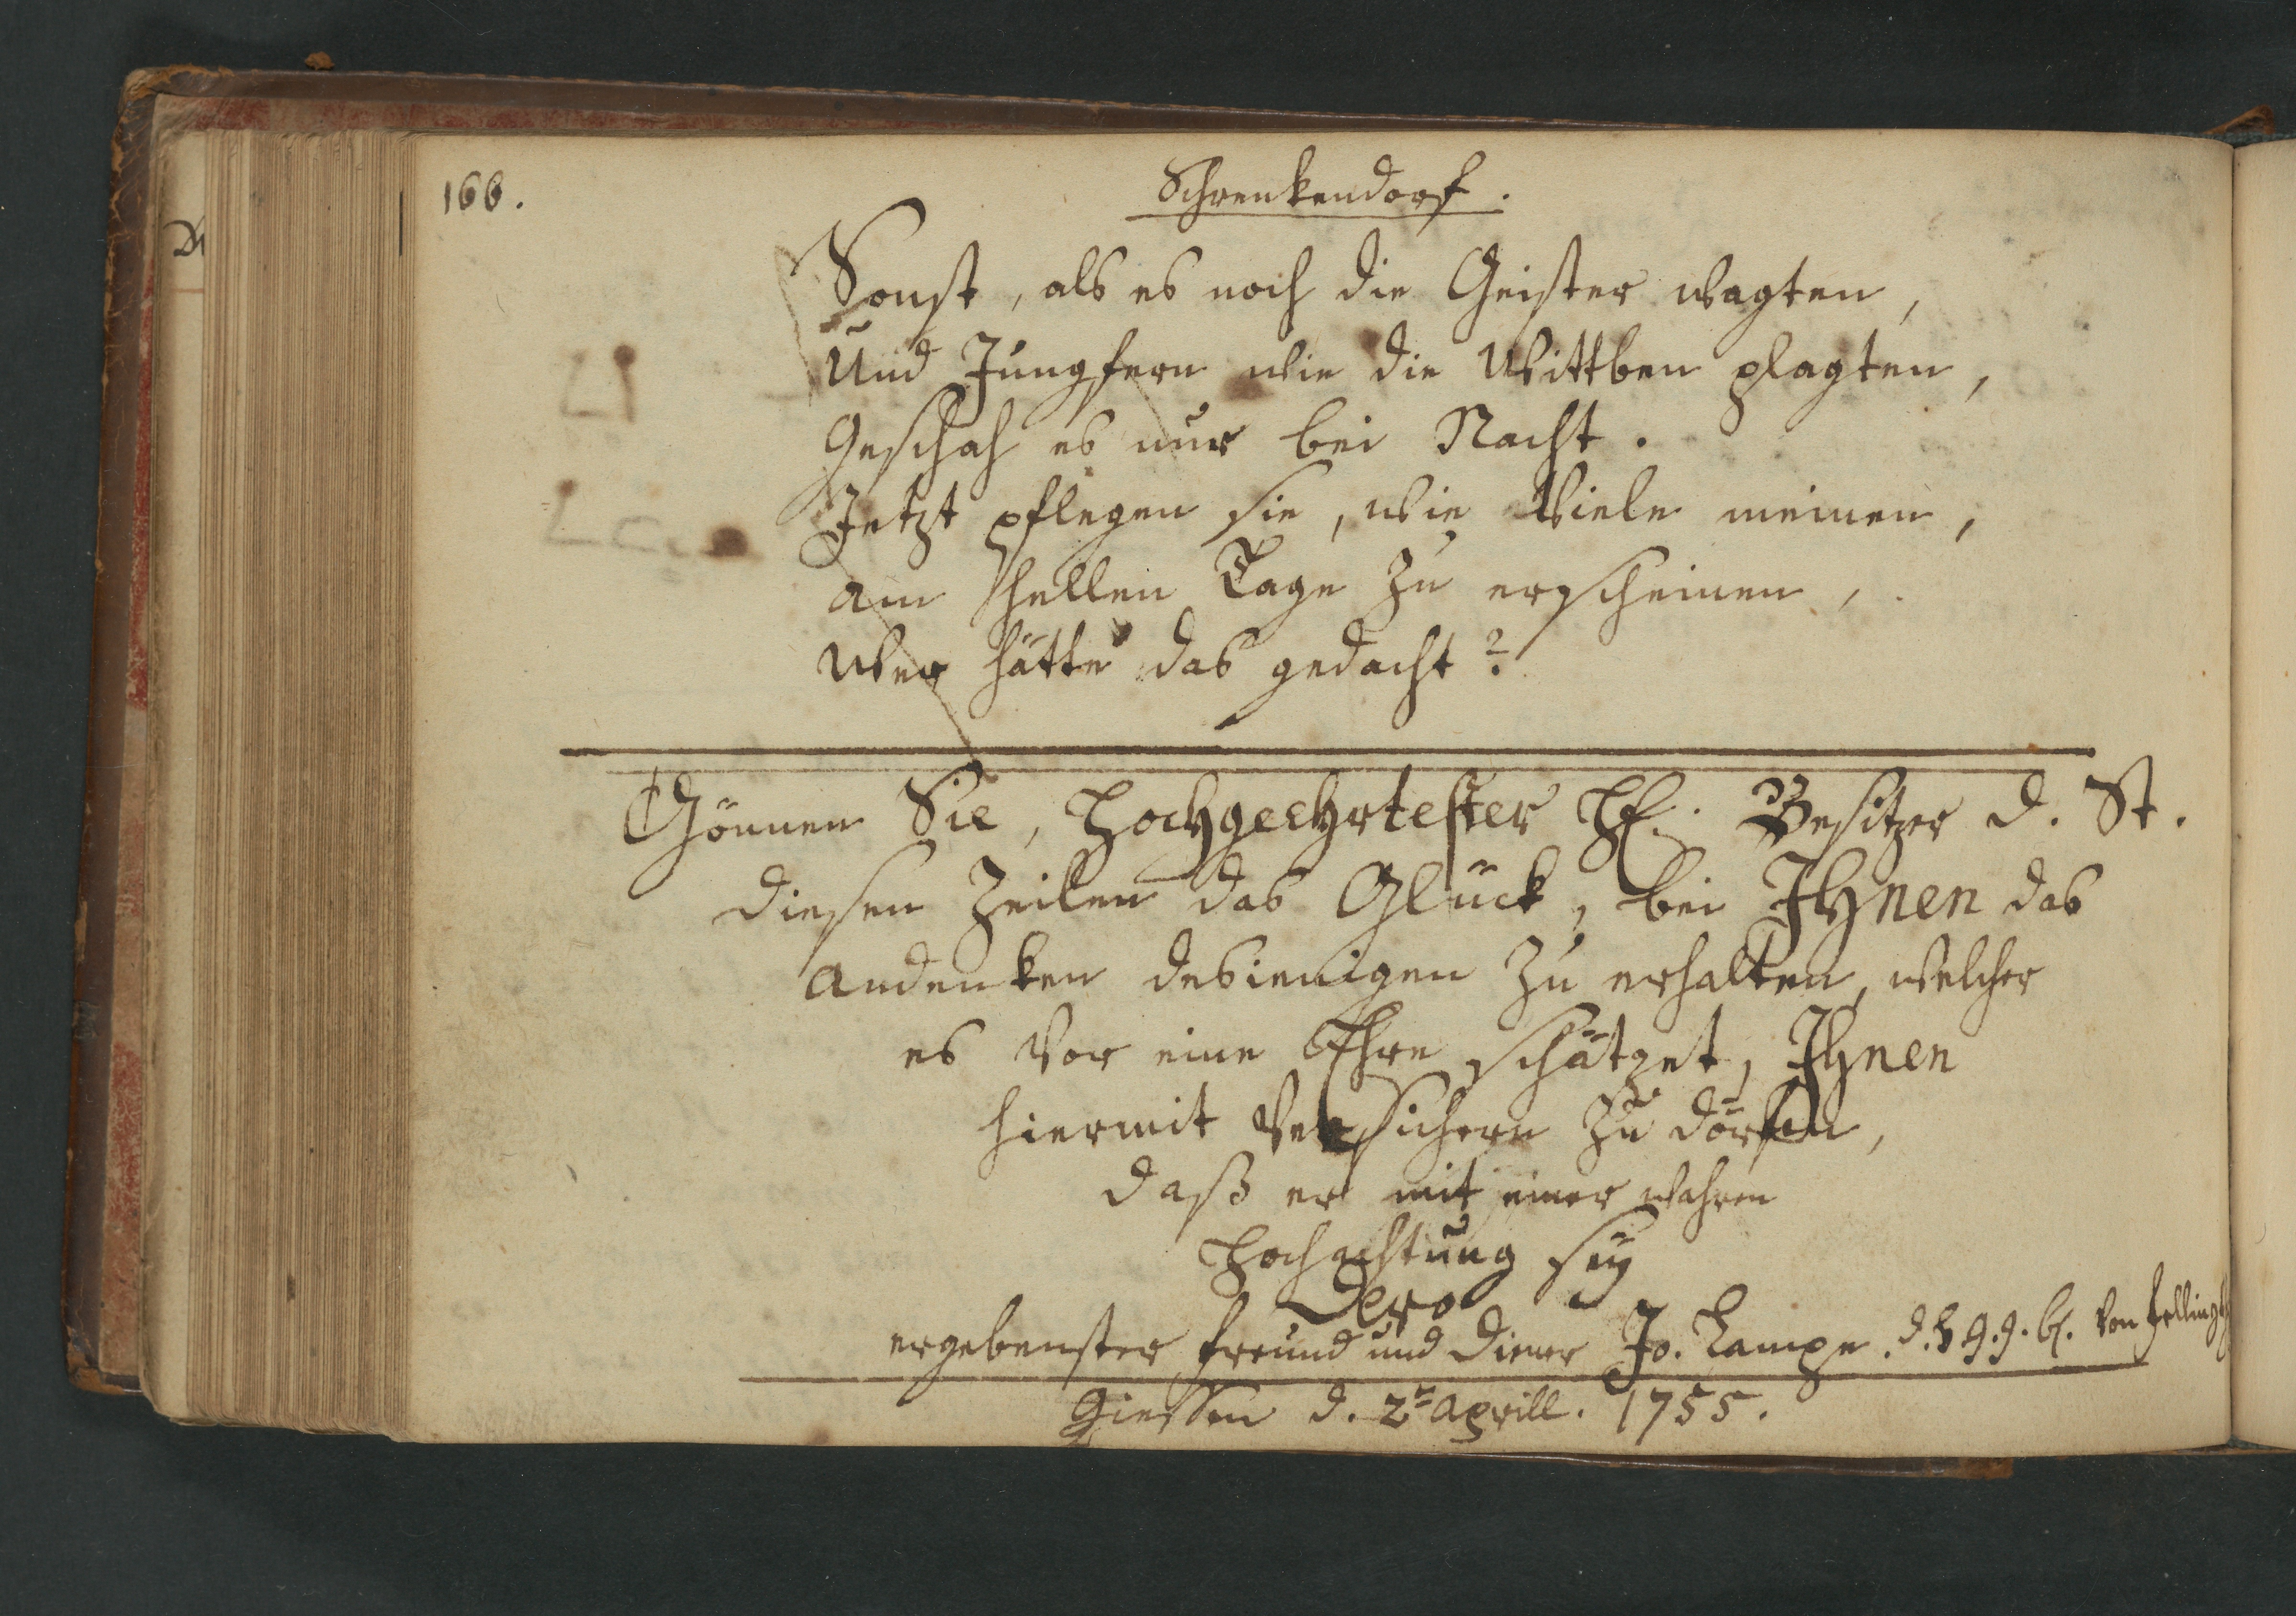 166.
Schrenkendorf.
Sonst, als es noch die Geister wagten,
Und Jungfern wie die Wittben plagten,
Geschah es nur bei Nacht.
Jetzt pflegen sie, wie Viele meinen,
am hellen Tage zu erscheinen,
Wer hätte das gedacht?
Gönnen Sie, Hochgeehrtester H. Besitzer d. St.
diesen Zeilen das Glück, bei Ihnen das
andenken desienigen zu erhalten, welcher
es vor eine Ehre schätzet, Ihnen
hiermit versichern zu dörfen,
daß er mit einer wahren
Hochachtung sey
Dero
ergebenster freund und Diener Jo. Lampe. d. G. G. b. von
Giessen d. 2t aprill. 1755.